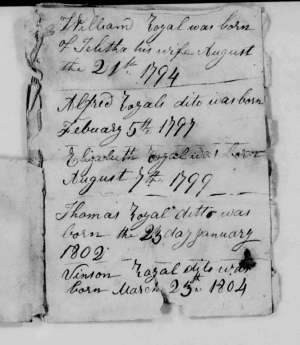 William Royal was born
of Telitha his wife August
the 21th 1794
Alfred Royals dito was born
Febuary 5th 1797
Elizabeth Royal was born
August 7th 1799
Thomas Royal ditto was
born the 23 day january
1802
Vinson Royal was
born March 25th 1804